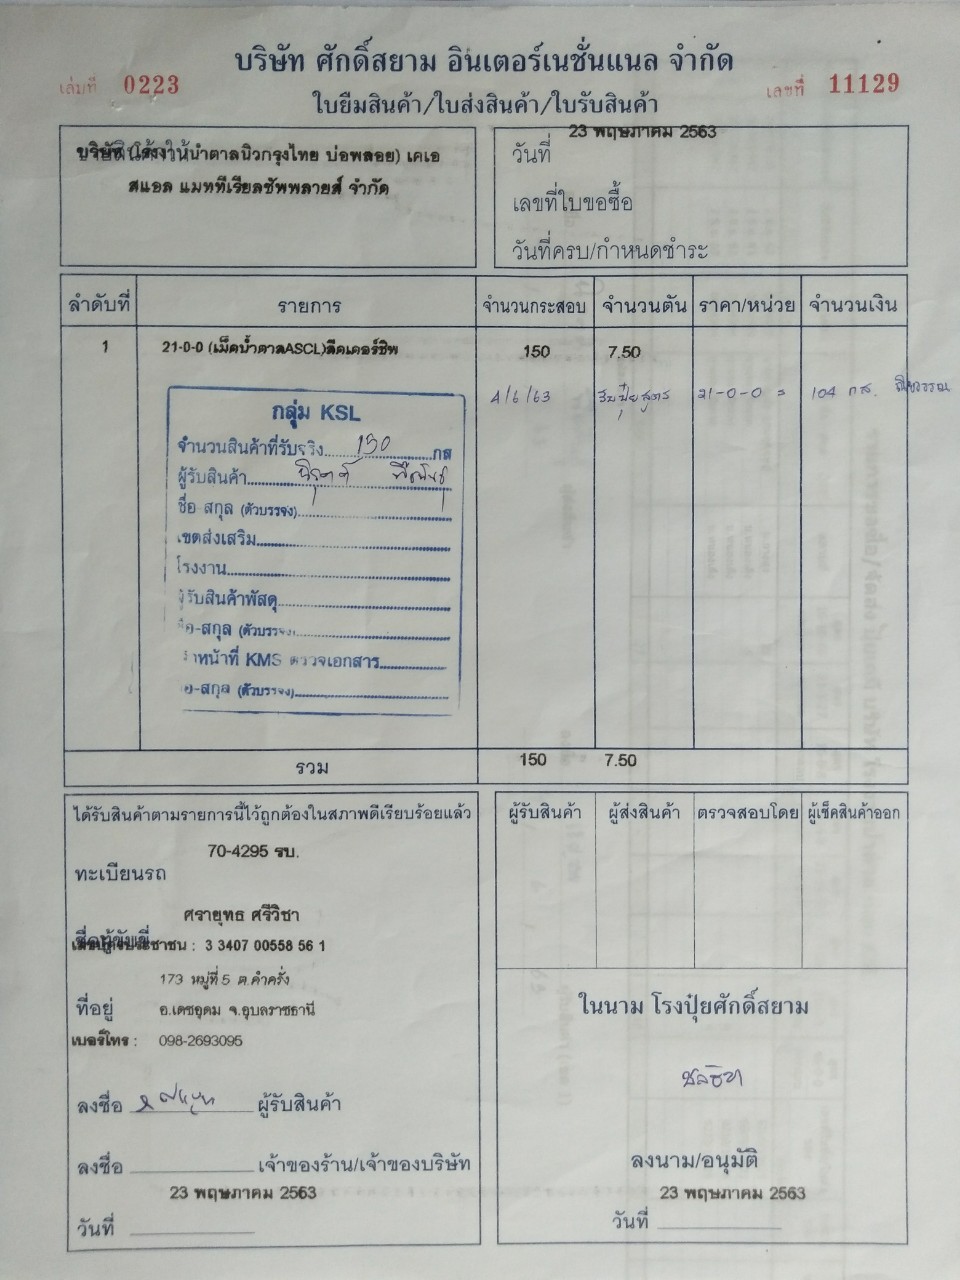 บริษัท ศักดิ์สยาม อินเตอร์เนชั่นแนล จำกัด
เล่มที่ 0223
เลขที่ 11129
ใบยืมสินค้า/ใบส่งสินค้า/ใบรับสินค้า
บริษัท (โรงงานน้ำตาลนิวกรุงไทย บ่อพลอย) เคเอ
สแอล แมททีเรียลซัพพลายส์ จำกัด
23 พฤษภาคม 2563
วันที่
เลขที่ใบขอซื้อ
วันที่ครบ/กำหนดชำระ
ลำดับที่ รายการ จำนวนกระสอบ จำนวนตัน ราคา/หน่วย จำนวนเงิน
1 21-0-0 (เม็ดน้ำตาลASCL)ลีดเดอร์ชิพ 150 7.50
4/6/63 รับปุ๋ยสูตร 21-0-0 = 104 กส.
กลุ่ม KSL
จำนวนสินค้าที่รับจริง 150 กส
ผู้รับสินค้า
ชื่อ-สกุล (ตัวบรรจง)
เขตส่งเสริม
โรงงาน
ผู้รับสินค้าพัสดุ
ชื่อ-สกุล (ตัวบรรจง)
เจ้าหน้าที่ KMS ตรวจเอกสาร
ชื่อ-สกุล (ตัวบรรจง)
รวม 150 7.50
ได้รับสินค้าตามรายการนี้ไว้ถูกต้องในสภาพดีเรียบร้อยแล้ว
70-4295 รบ.
ทะเบียนรถ
ศรายุทธ ศรีวิชา
ชื่อผู้ขับขี่
เลขบัตรประชาชน : 3 3407 00558 56 1
173 หมู่ที่ 5 ต.คำครั่ง
ที่อยู่ อ.เดชอุดม จ.อุบลราชธานี
เบอร์โทร : 098-2693095
ลงชื่อ ผู้รับสินค้า
ลงชื่อ เจ้าของร้าน/เจ้าของบริษัท
23 พฤษภาคม 2563
วันที่
ผู้รับสินค้า ผู้ส่งสินค้า ตรวจสอบโดย ผู้เช็คสินค้าออก
ในนาม โรงปุ๋ยศักดิ์สยาม
ชลธิชา
ลงนาม/อนุมัติ
23 พฤษภาคม 2563
วันที่